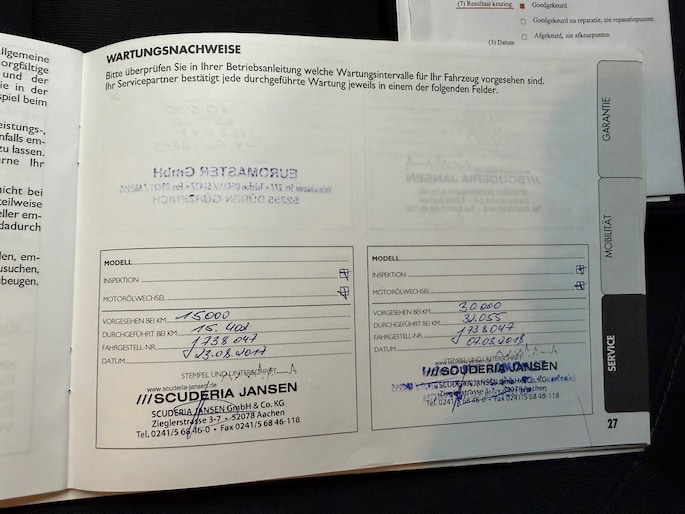 (7) Resultaat keuring
Goedgekeurd
Goedgekeurd na reparatie, zie reparatiepunten
Afgekeurd, zie afkeurpunten
(3) Datum
llgemeine
orgfältige
und der
ie in der
spiel beim
eistungs-,
nfalls em-
zu lassen.
erne Ihr
nicht bei
teilweise
eller em-
dadurch
den, em-
usuchen,
beugen.
WARTUNGSNACHWEISE
Bitte überprüfen Sie in Ihrer Betriebsanleitung welche Wartungsintervalle für Ihr Fahrzeug vorgesehen sind.
Ihr Servicepartner bestätigt jede durchgeführte Wartung jeweils in einem der folgenden Felder.
EUROMASTER GmbH
52355 DÜREN-GÜRZENICH
///SCUDERIA JANSEN
MODELL
INSPEKTION
MOTORÖLWECHSEL
VORGESEHEN BEI KM 15000
DURCHGEFÜHRT BEI KM 15.402
FAHRGESTELL-NR. 1738047
DATUM 23.08.2017
STEMPEL UND UNTERSCHRIFT
www.scuderia-jansen.de
///SCUDERIA JANSEN
SCUDERIA JANSEN GmbH & Co. KG
Zieglerstrasse 3-7 • 52078 Aachen
Tel. 0241/5 68 46-0 • Fax 0241/5 68 46-118
MODELL
INSPEKTION
MOTORÖLWECHSEL
VORGESEHEN BEI KM 30.000
DURCHGEFÜHRT BEI KM 32.055
FAHRGESTELL-NR. 1738047
DATUM 07.03.2018
STEMPEL UND UNTERSCHRIFT
///SCUDERIA JANSEN
Zieglerstrasse 3-7 • 52078 Aachen
Tel. 0241/5 68 46-0 • Fax 0241/5 68 46-118
GARANTIE
MOBILITÄT
SERVICE
27